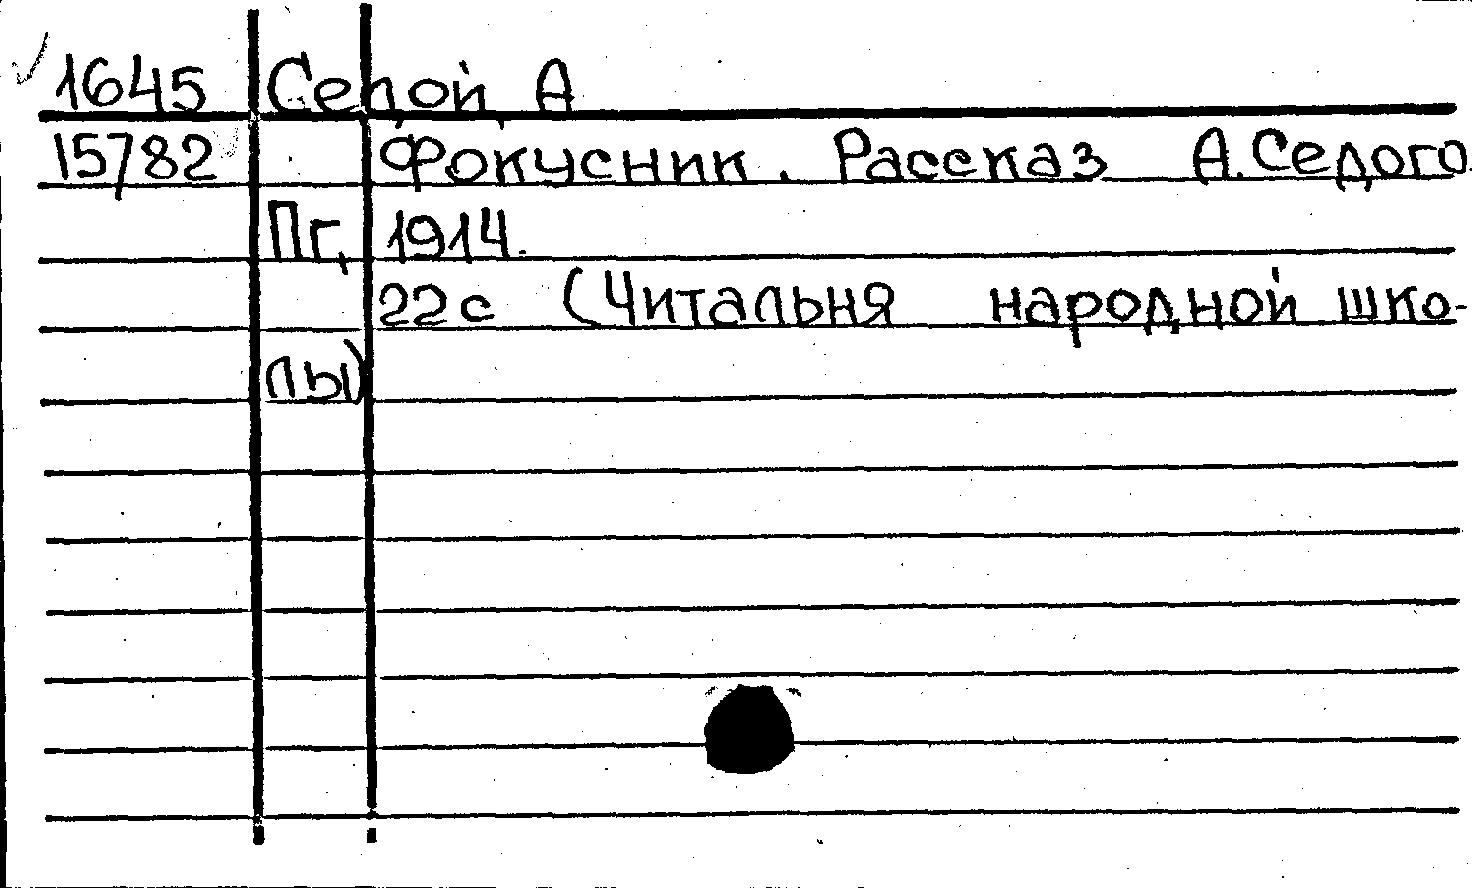 1645 Седой А
15782 Фокусник. Рассказ А.Седого
Пг, 1914.
22с (Читальня народной шко-
лы)